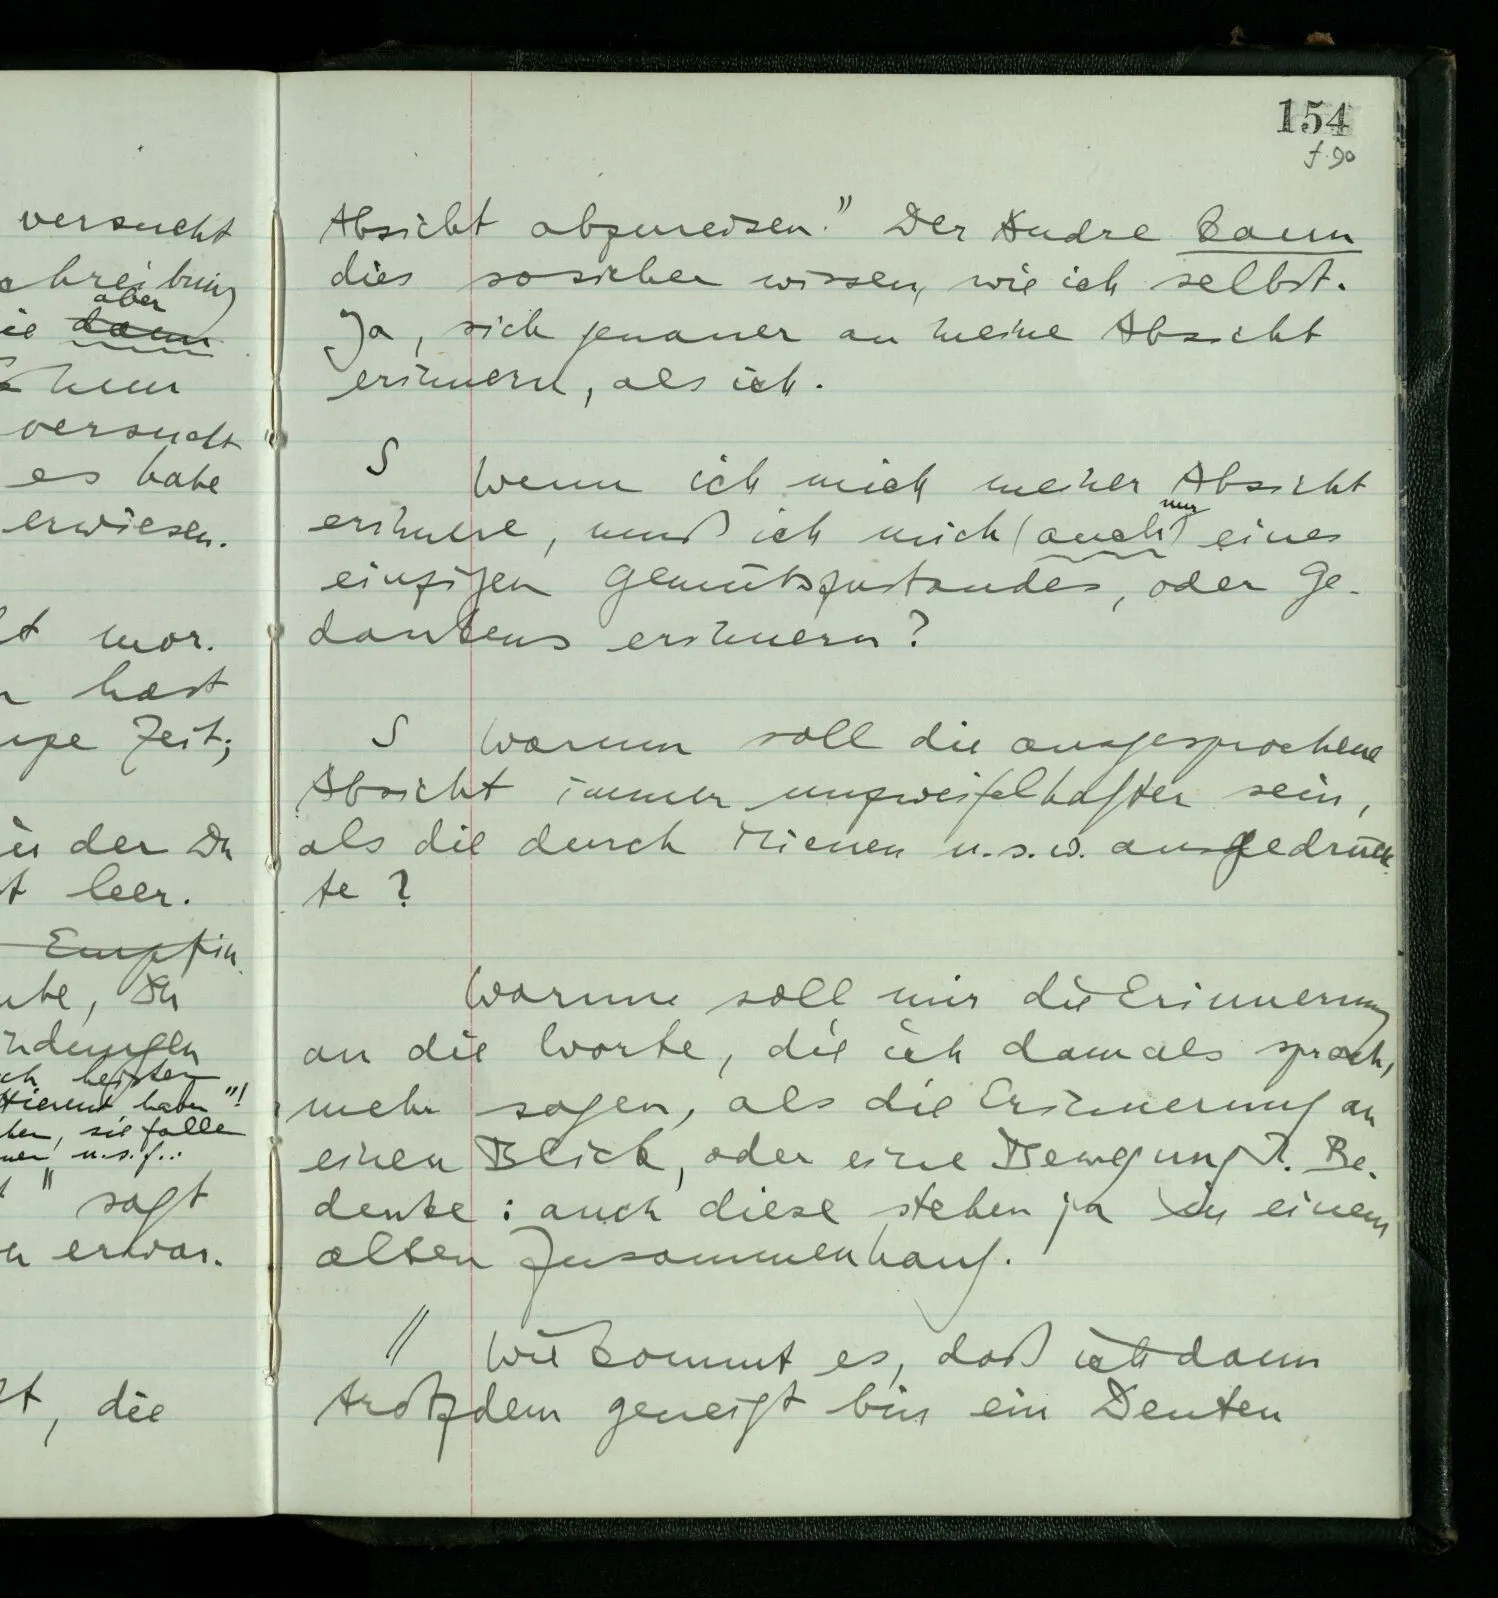 versucht
chreibung
aber
ie dann
versucht
es habe
erwiesen.
t mor.
hast
nge Zeit;
in der Du
t leer.
Empfin
ndungen
ch leisten
ben, sie falle
ner u.s.f..
" sagt
n erwar.
t, die
154
f.90
Absicht abzuweisen." Der Andre kann
dies so sicher wissen, wie ich selbst.
Ja, sich genauer an meine Absicht
erinnern, als ich.
S Wenn ich mich meiner Absicht
nur
erinnere, muß ich mich (auch) eines
einzigen Gemütszustandes, oder Ge-
dankens erinnern?
S Warum soll die ausgesprochene
Absicht immer unzweifelhafter sein,
als die durch Mienen u.s.w. ausgedrück-
te?
Warum soll mir die Erinnerung
an die Worte, die ich damals sprach,
mehr sagen, als die Erinnerung an
einen Blick, oder eine Bewegung?. Be-
denke: auch diese stehen ja in einem
alten Zusammenhang.
// Wie kommt es, daß ich dann
trotzdem geneigt bin ein Deuten